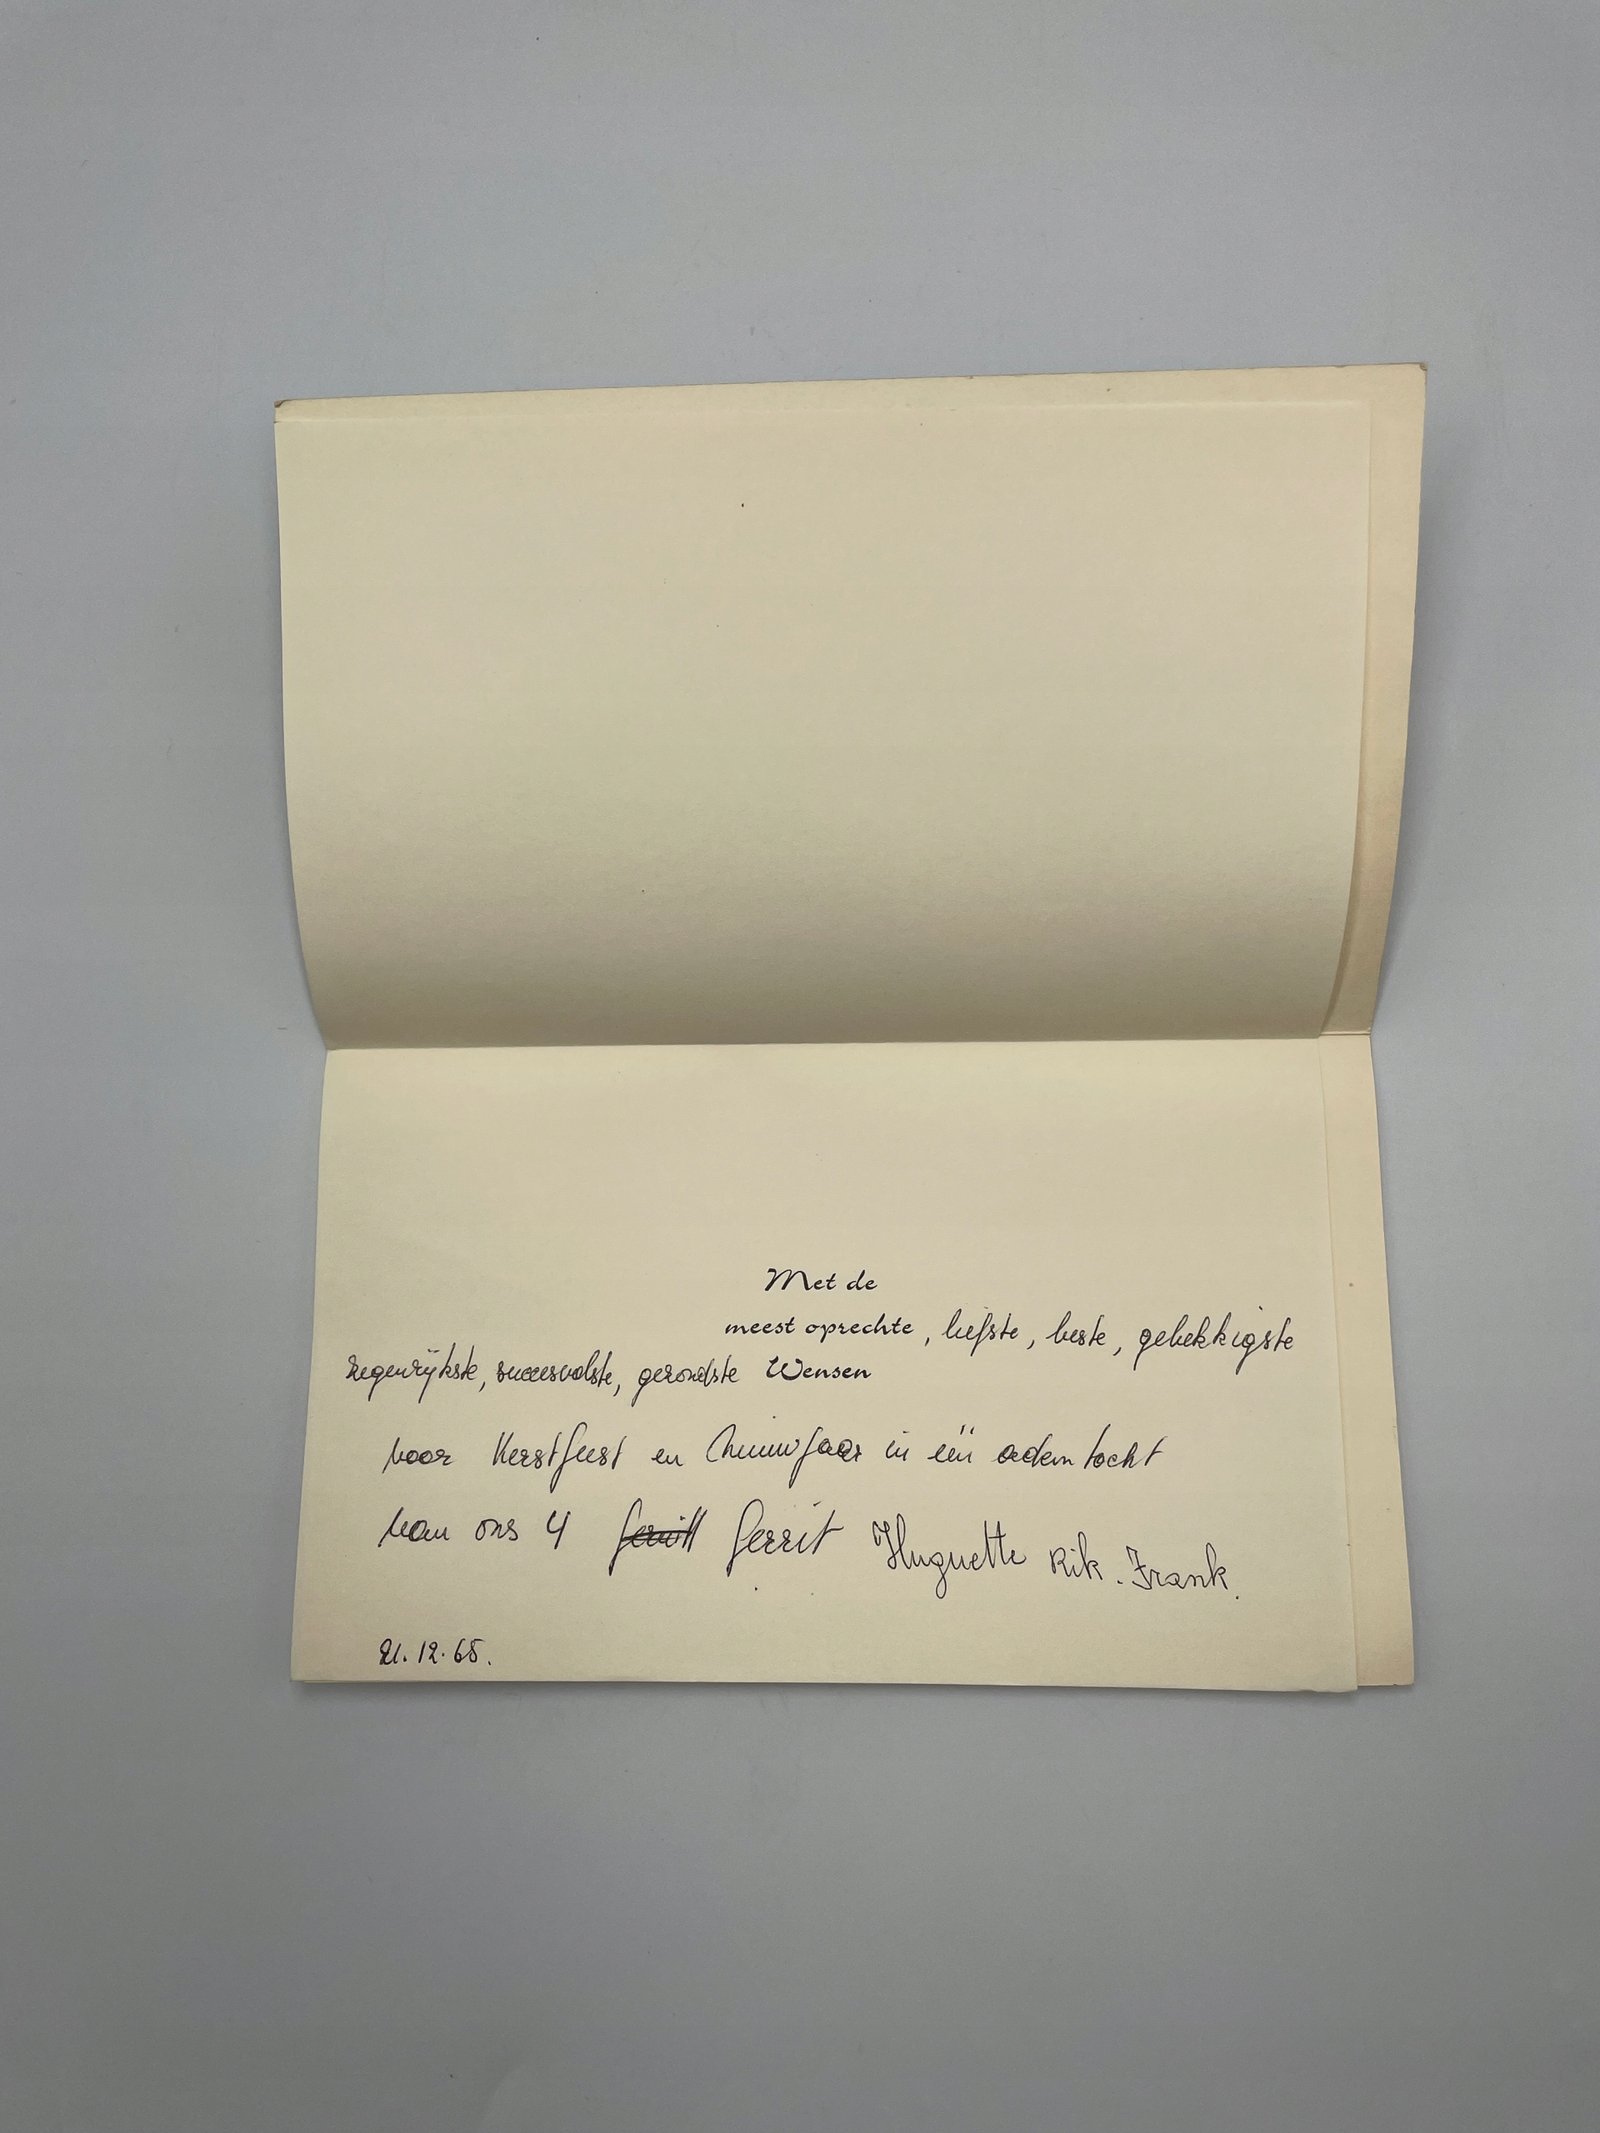 Met de
meest oprechte, liefste, beste, gelukkigste
zegenrijkste, succesvolste, gezondste Wensen
voor Kerstfeest en Nieuwjaar in één ademtocht
van ons 4 Gerrit Huguette Rik. Frank.
21.12.65.